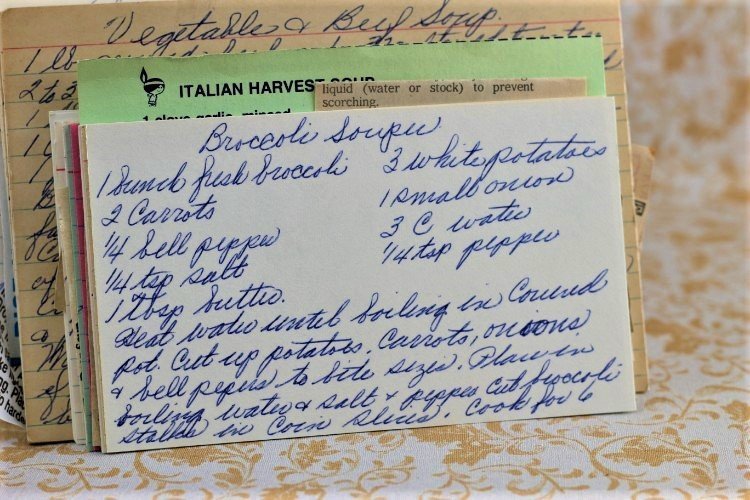 Vegetables & Beef Soup.
1 lb
2 to 2
ITALIAN HARVEST SOUP
1 clove garlic, minced
liquid (water or stock) to prevent
scorching.
Broccoli Souper
1 bunch fresh broccoli
2 Carrots
1/4 bell pepper
1/4 tsp salt
1 Tbsp butter.
3 white potatoes
1 small onion
3 C water
1/4 tsp pepper
Heat water until boiling in Covered
pot. Cut up potatoes, carrots, onions
& bell pepers to bite sizes. Place in
boiling water & salt & pepper cut broccoli
stalks in Coin slices. Cook for 6